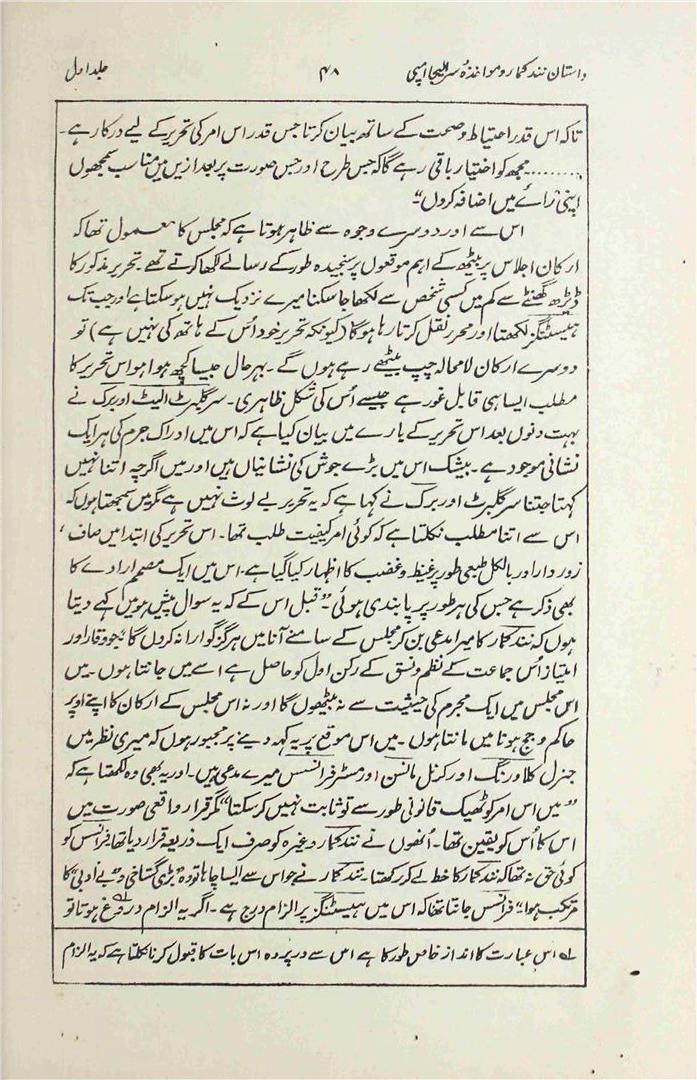 داستان نند کمار و مواخذۂ سر الیجا امپی ۴۸ جلد اول
تاکہ اس قدر احتیاط و صحت کے ساتھ بیان کرتا جس قدر اس امر کی تحریر کے لیے درکار ہے۔
........ مجھ کو اختیار باقی رہے گا کہ جس طرح اور جس صورت پر بعد ازیں میں مناسب سمجھوں
اپنی رائے میں اضافہ کروں“
اس سے اور دوسرے وجوہ سے ظاہر ہوتا ہے کہ مجلس کا معمول تھا کہ
ارکان اجلاس پر بیٹھ کے اہم موقعوں پر سنجیدہ طور کے رسالے لکھا کرتے تھے تحریر مذکور کا
ڈیڑھ گھنٹے سے کم میں کسی شخص سے لکھا جا سکنا میرے نزدیک نہیں ہو سکتا ہے اور جب تک
ہیسٹنگز لکھتا اور محرر نقل کرتا رہا ہو گا (کیونکہ تحریر خود اُس کے ہاتھ کی نہیں ہے) تو
دوسرے ارکان لامحالہ چپ بیٹھے رہے ہوں گے۔ بہر حال جیسا کچھ ہوا ہو اس تحریر کا
مطلب ایسا ہی قابل غور ہے جیسے اُس کی شکل ظاہری۔ سر گلبرٹ الیٹ اور برک نے
بہت دنوں بعد اس تحریر کے بارے میں بیان کیا ہے کہ اس میں ادراک جرم کی ہر ایک
نشانی موجود ہے۔ بیشک اس میں بڑے جوش کی نشانیاں ہیں اور میں اگرچہ اتنا نہیں
کہتا جتنا سر گلبرٹ اور برک نے کہا ہے کہ یہ تحریر بے لوث نہیں ہے مگر میں سمجھتا ہوں کہ
اس سے اتنا مطلب نکلتا ہے کہ کوئی امر کیفیت طلب تھا۔ اس تحریر کی ابتدا میں صاف،
زور دار اور بالکل طبعی طور پر غیظ و غضب کا اظہار کیا گیا ہے۔ اس میں ایک مصمم ارادے کا
بھی ذکر ہے جس کی ہر طور پر پابندی ہوئی۔ ”قبل اس کے کہ یہ سوال پیش ہو میں کہے دیتا
ہوں کہ نند کمار کا میرا مدعی بن کر مجلس کے سامنے آنا میں ہرگز گوارا نہ کروں گا۔ جو وقار اور
امتیاز اُس جماعت کے نظم و نسق کے رکن اول کو حاصل ہے اسے میں جانتا ہوں۔ میں
اس مجلس میں ایک مجرم کی حیثیت سے نہ بیٹھوں گا اور نہ اس مجلس کے ارکان کا اپنے اوپر
حاکم و جج ہونا میں مانتا ہوں۔ میں اس موقع پر یہ کہہ دینے پر مجبور ہوں کہ میری نظر میں
جنرل کلاورنگ اور کرنل مانسن اور مسٹر فرانسس میرے مدعی ہیں۔ اور یہ بھی وہ لکھتا ہے کہ
”میں اس امر کو ٹھیک قانونی طور سے تو ثابت نہیں کر سکتا“ مگر قرار واقعی صورت میں
اس کا اُس کو یقین تھا۔ اُنھوں نے نند کمار وغیرہ کو صرف ایک ذریعہ قرار دیا تھا فرانسس کو
کوئی حق نہ تھا کہ نند کمار کا خط لے کر رکھتا۔ نند کمار نے جو اس سے ایسا چاہا تو وہ ”بڑی گستاخی و بے ادبی“ کا
مرتکب ہوا۔“ فرانسس جانتا تھا کہ اس میں ہیسٹنگز پر الزام درج ہے۔ اگر یہ الزام دروغ ہوتا تو
لہ اس عبارت کا انداز خاص طور کا ہے اس سے در پردہ اس بات کا قبول کرنا نکلتا ہے کہ یہ الزام